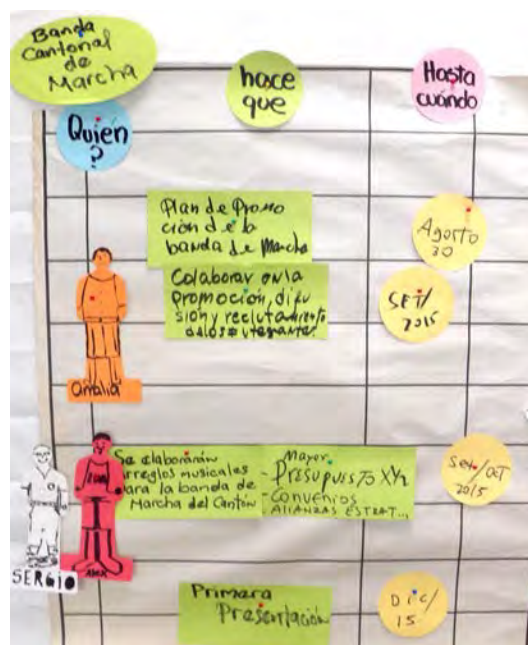 Banda
Cantonal
de
Marcha
hace
que
Hasta
cuándo
Quién
?
Plan de Promo
ción de la
banda de Marcha
Agosto
30
Colaborar en la
promoción, difu
sión y reclutamiento
SET/
2015
analia
Se elaborarán
arreglos musicales
para la banda de
Marcha del Cantón
Mayor
- PRESUPUESTO X½
- CONVENIOS
ALIANZAS ESTRAT...
Set/OCT
2015
SERGIO
ALEX
Primera
Presentación
Dic/
15